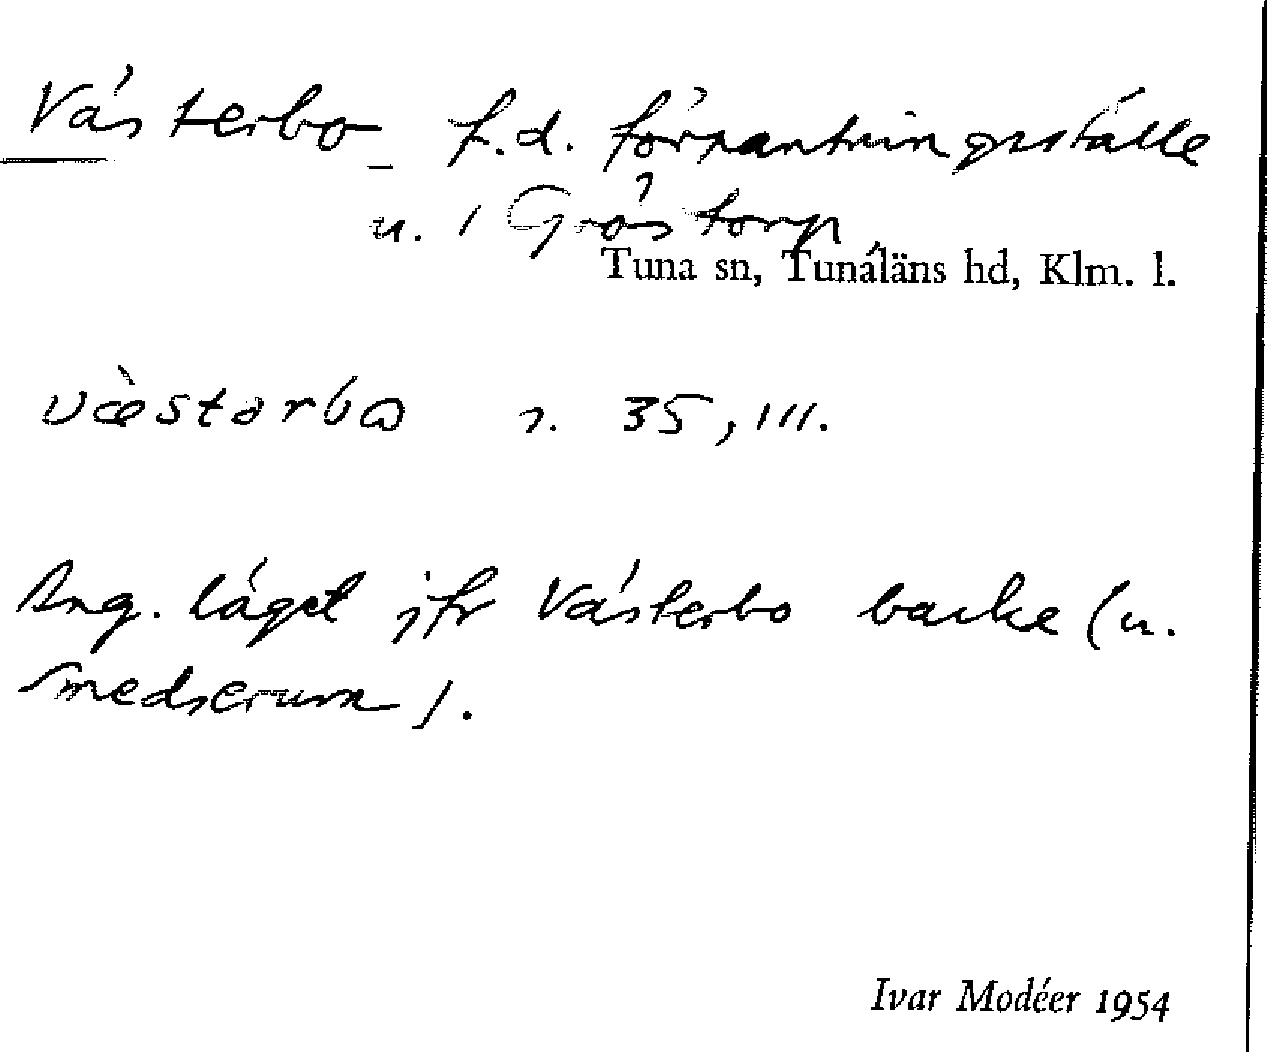 Västerbo f.d. förpantningsställe
u. 1 Gröstorp
Tuna sn, Tunaläns hd, Klm. l.
væ̀stərbω r. 35, III.
Ang. läget jfr Västerbo backe (u.
Smedserum).
Ivar Modéer 1954